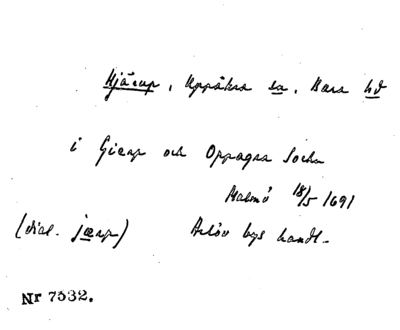 Hjärup, Uppåkra sn, Bara hd
i Gierup och Oppagra Sochn
Malmö 18/5 1691
(dial. jærup) Arlöv bys handl.
Nr 7532.